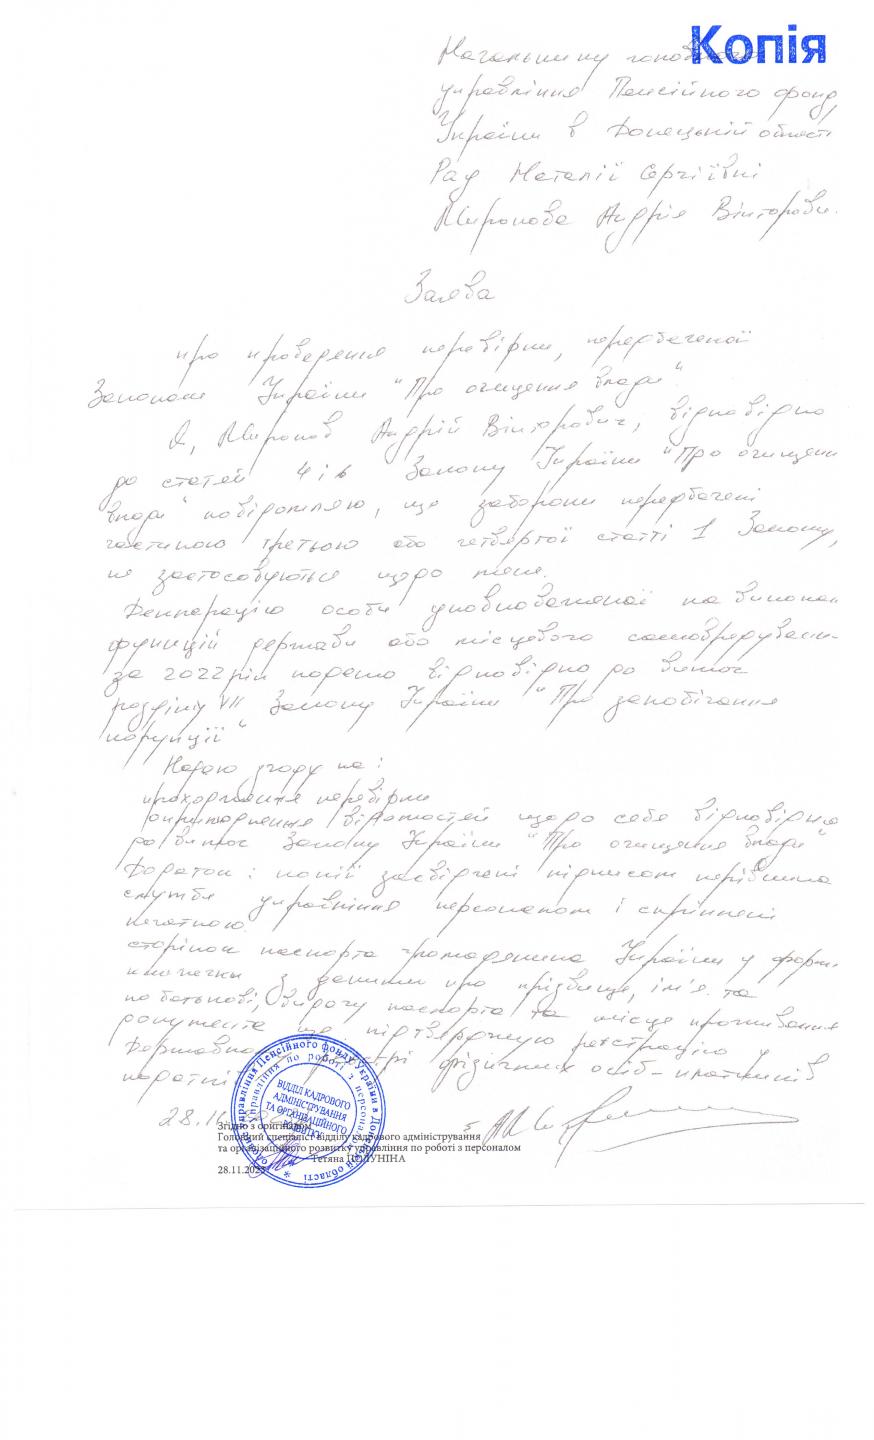 Копія
Начальнику головного
управління Пенсійного фонду
України в Донецькій області
Рад Наталії Сергіївні
Миронова Андрія Вікторови
Заява
про проведення перевірки, передбаченої
Законом України "Про очищення влади"
Я, Миронов Андрій Вікторович, відповідно
до статей 4 і 6 Закону України "Про очищення
влади" повідомляю, що заборони передбачені
частиною третьою або четвертої статті 1 Закону,
не застосовуються щодо мене.
Декларацію особи уповноваженої на викона
функцій держави або місцевого самоврядуванн
за 2022 рік подано відповідно до вимог
розділу VII Закону України "Про запобігання
корупції"
Надаю згоду на:
проходження перевірки
оприлюднення відомостей щодо себе відповідно
до вимог Закону України "Про очищення влади"
Додаток: копії засвідчені підписом керівника
служби управління персоналом і скріплені
печаткою
сторінок паспорта громадянина України у формі
книжечки з даними про прізвище, ім'я та
по батькові, видачу паспорта та місце проживання
документа що підтверджує реєстрацію у
Державному реєстрі фізичних осіб-платників
податків
28.11.
ВІДДІЛ КАДРОВОГО
АДМІНІСТРУВАННЯ
ТА ОРГАНІЗАЦІЙНОГО
РОЗВИТКУ
Головне управління Пенсійного фонду України в Донецькій області
управління по роботі з персоналом
Згідно з оригіналом
Головний спеціаліст відділу кадрового адміністрування
та організаційного розвитку управління по роботі з персоналом
Тетяна ПОЛУНІНА
28.11.2023